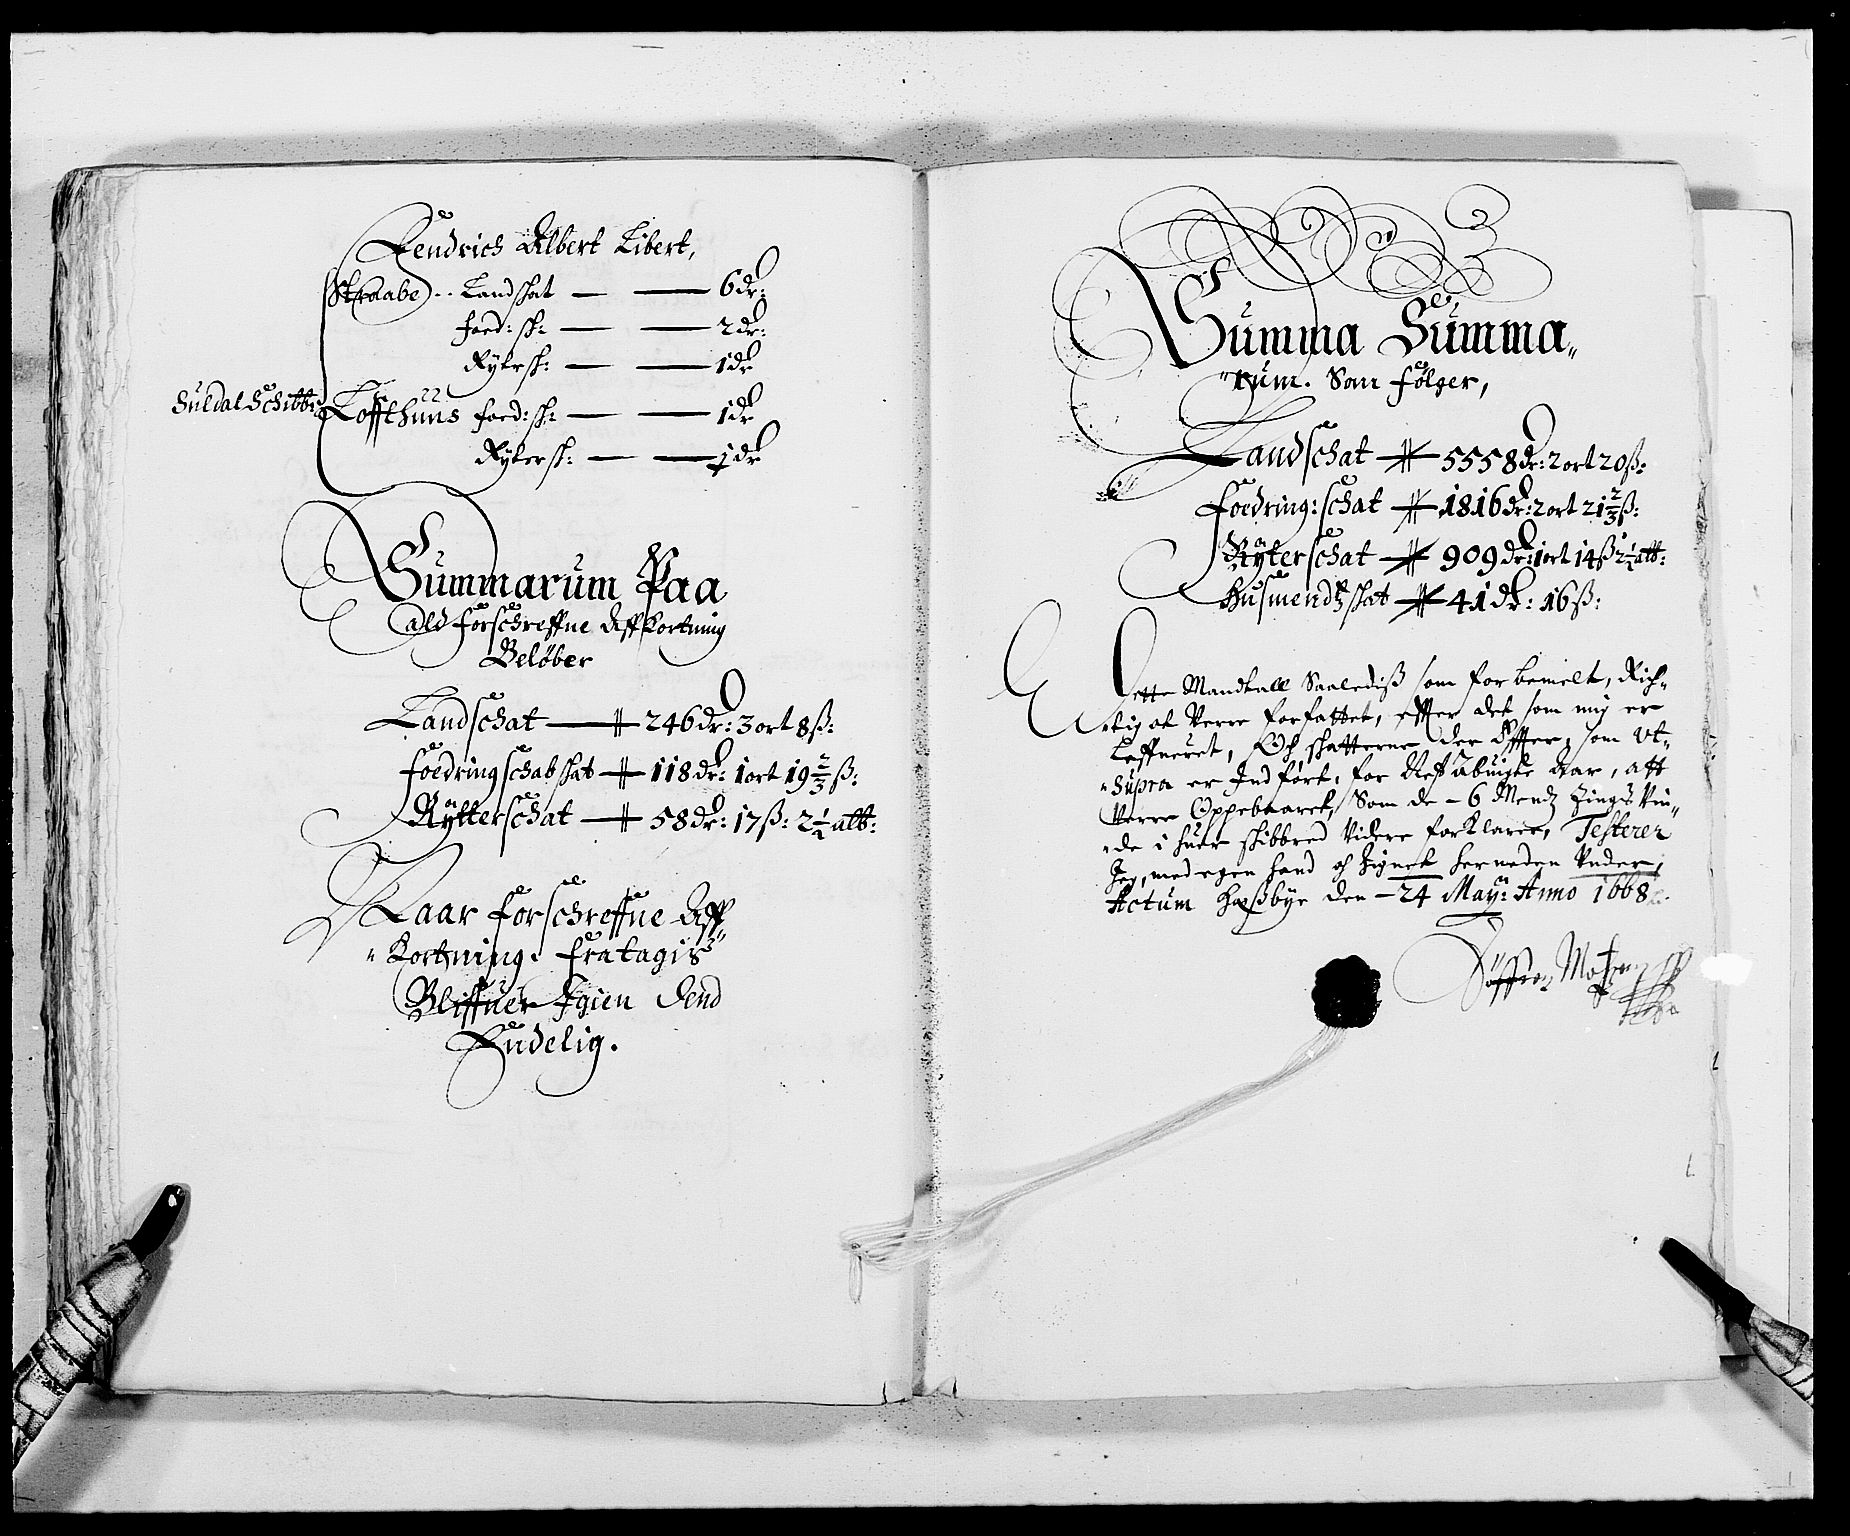 Fendrich Albert Libert,
Skraabe .. Landskat — — 6dr:
foed: sk: — — 2dr:
Rytersk: — — 1dr
Suldal Schibbr: Loffthuus foed: sk: — — 1dr
Rytersk: — — 1dr
Summarum Paa
ald forschreffne Affkortning
Beløber
Landschat — 246dr: 3ort 8ß:
foedringschabskat — 118dr: 1ort 19 2/3 ß:
Rÿtterschat — 58dr: 17ß: 2 1/4 alb:
Naar forschreffne Aff„
„Kortning. fratagis
Bliffuer Igien Rend
Endelig.
Summa Summa„
„rum. Som følger,
Landschat — 5558dr: 2ort 20ß:
foedring: schat — 1816dr: 2ort 21 2/3 ß:
Rÿterschat — 909dr: 1ort 14ß 2 1/4 alb:
Husmendz skat — 41dr: 16ß:
Dette Mandtall Saalediß som forbemelt, Rich„
„tig at Verre forfattet, effter det som mig er
Leffueret, Och skatterne der effter, som Vt„
„Supra er Indført, for Reffs Aar, att
Verre Oppebaaret, Som de - 6 Mendz Tings Vin„
„de i huer skibbred Videre forklarer, Testerer
Jeg, med egen hand och Zignet her neden Vnder,
Actum Haßbye den - 24 May: Anno 1668.